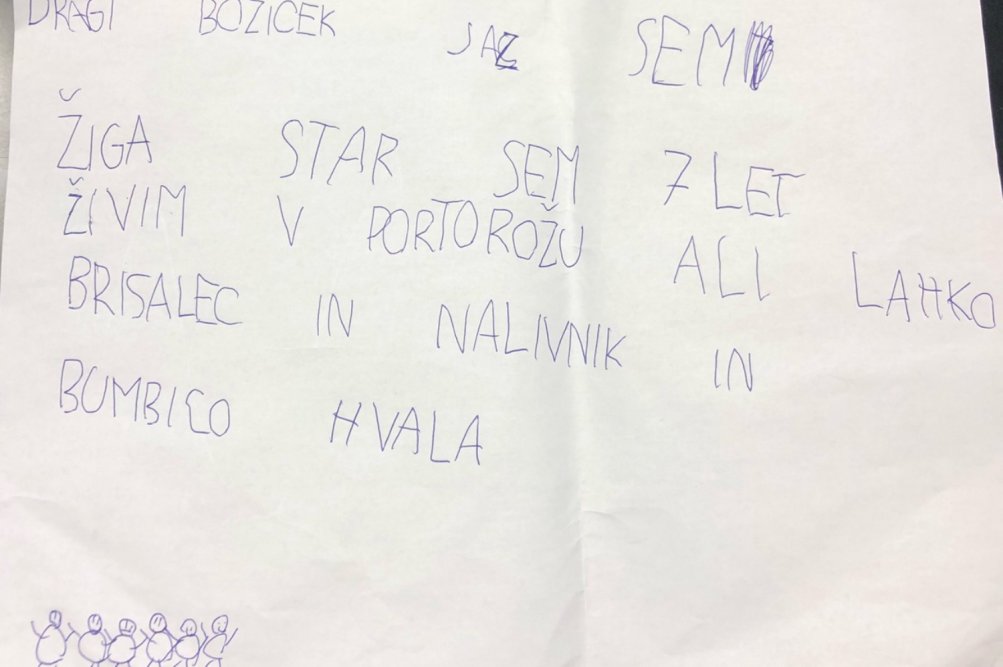 DRAGI BOZICEK JAZ SEM
ŽIGA STAR SEM 7 LET
ŽIVIM V PORTOROŽU ALI LAHKO
BRISALEC IN NALIVNIK IN
BUMBICO HVALA